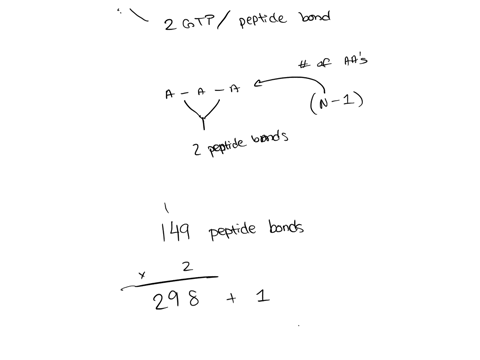 2 GTP / peptide bond
# of AA's
A - A - A
(N-1)
2 peptide bonds
1
149 peptide bonds
x 2
298 + 1